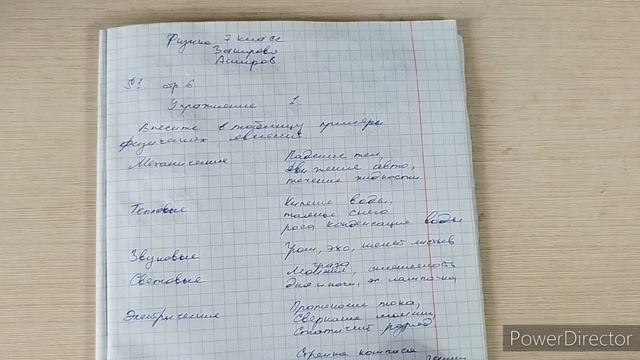 Физика 7 класс
Закирова
Аширов
§1 стр 6
Упражнение 1
Внесите в таблицу примеры
физических явлений
Механические Падение тел,
движение авто,
течение жидкости
Тепловые Кипение воды,
таянье снега
роса конденсация воды
Звуковые Гром, эхо, шелест листьев
гроза
Световые Молния, сменяемость
дня и ночи, эл лампочка
Электрические Протекание тока,
Сверкание молнии,
Статичный разряд
Стрелка компаса
PowerDirector